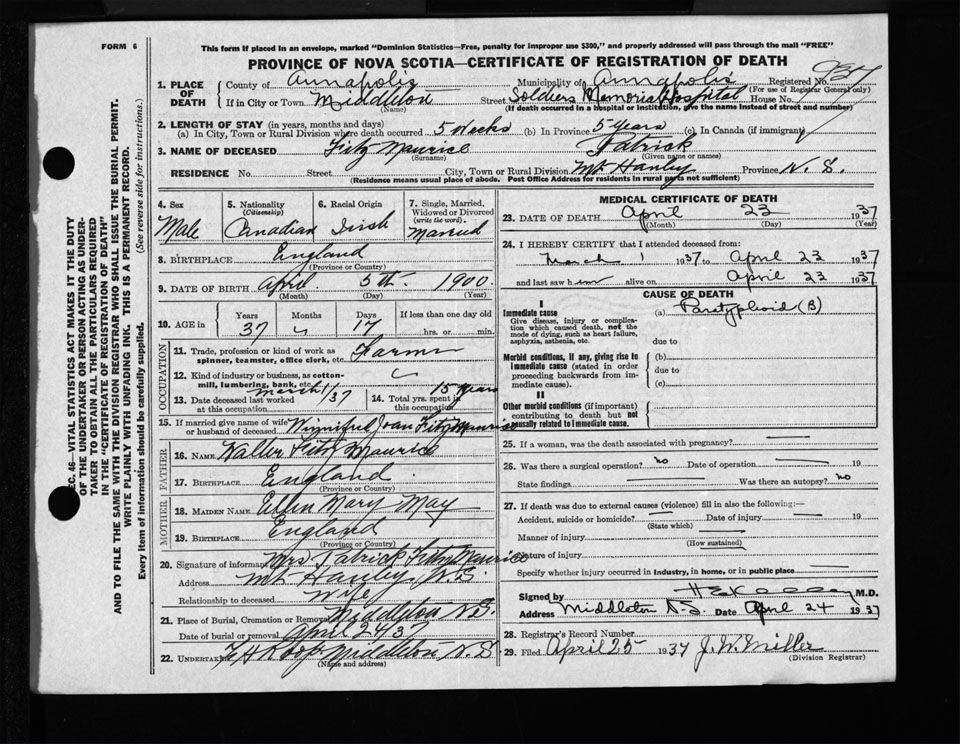 FORM 6
This form if placed in an envelope, marked "Dominion Statistics—Free, penalty for improper use $300," and properly addressed will pass through the mail "FREE"
PROVINCE OF NOVA SCOTIA—CERTIFICATE OF REGISTRATION OF DEATH
1. PLACE OF DEATH
County of Annapolis Municipality of Annapolis Registered No. 937
(For use of Registrar General only)
If in City or Town Middleton Street Soldiers Memorial Hospital House No.
(If death occurred in a hospital or institution, give the name instead of street and number)
2. LENGTH OF STAY (in years, months and days)
(a) In City, Town or Rural Division where death occurred 5 Weeks (b) In Province 5 Years (c) In Canada (if immigrant)
3. NAME OF DECEASED Fitz Maurice Patrick
(Surname) (Given name or names)
RESIDENCE No. Street City, Town or Rural Division Mt Hanley Province N. S.
(Residence means usual place of abode. Post Office Address for residents in rural parts not sufficient)
4. Sex Male
5. Nationality (Citizenship) Canadian
6. Racial Origin Irish
7. Single, Married, Widowed or Divorced (write the word) Married
8. BIRTHPLACE England
(Province or Country)
9. DATE OF BIRTH April 5th 1900
(Month) (Day) (Year)
10. AGE in Years Months Days If less than one day old
37 17 hrs. or min.
OCCUPATION
11. Trade, profession or kind of work as spinner, teamster, office clerk, etc. Farmer
12. Kind of industry or business, as cotton-mill, lumbering, bank, etc.
13. Date deceased last worked at this occupation March 1/37
14. Total yrs. spent in this occupation 15 years
15. If married give name of wife or husband of deceased Winnifred Joan Fitz Maurice
FATHER
16. NAME Walter Fitz Maurice
17. BIRTHPLACE England
(Province or Country)
MOTHER
18. MAIDEN NAME Ellen Mary May
19. BIRTHPLACE England
(Province or Country)
20. Signature of informant Mrs Patrick Fitz Maurice
Address Mt Hanley, N.S.
Relationship to deceased Wife
21. Place of Burial, Cremation or Removal Middleton N.S.
Date of burial or removal April 24 37
22. UNDERTAKER Middleton N.S.
(Name and address)
MEDICAL CERTIFICATE OF DEATH
23. DATE OF DEATH April 23 1937
(Month) (Day) (Year)
24. I HEREBY CERTIFY that I attended deceased from:
March 1 1937 to April 23 1937
and last saw him alive on April 23 1937
CAUSE OF DEATH
I
Immediate cause (a) Paratyphoid (B)
Give disease, injury or complication which caused death, not the mode of dying, such as heart failure, asphyxia, asthenia, etc.
due to
Morbid conditions, if any, giving rise to immediate cause (stated in order proceeding backwards from immediate cause).
(b)
due to
(c)
II
Other morbid conditions (if important) contributing to death but not causally related to immediate cause.
25. If a woman, was the death associated with pregnancy?
26. Was there a surgical operation? no Date of operation 19
State findings Was there an autopsy? no
27. If death was due to external causes (violence) fill in also the following:—
Accident, suicide or homicide? Date of injury 19
(State which)
Manner of injury
(How sustained)
Signature of injury
Specify whether injury occurred in industry, in home, or in public place
Signed by M.D.
Address Middleton N.S. Date April 24 1937
28. Registrar's Record Number
29. Filed April 25 1937 J. W. Miller
(Division Registrar)
SEC. 46—VITAL STATISTICS ACT MAKES IT THE DUTY
OF THE UNDERTAKER OR PERSON ACTING AS UNDER-
TAKER TO OBTAIN ALL THE PARTICULARS REQUIRED
IN THE "CERTIFICATE OF REGISTRATION OF DEATH"
AND TO FILE THE SAME WITH THE DIVISION REGISTRAR WHO SHALL ISSUE THE BURIAL PERMIT.
WRITE PLAINLY WITH UNFADING INK. THIS IS A PERMANENT RECORD.
Every item of information should be carefully supplied. (See reverse side for instructions.)